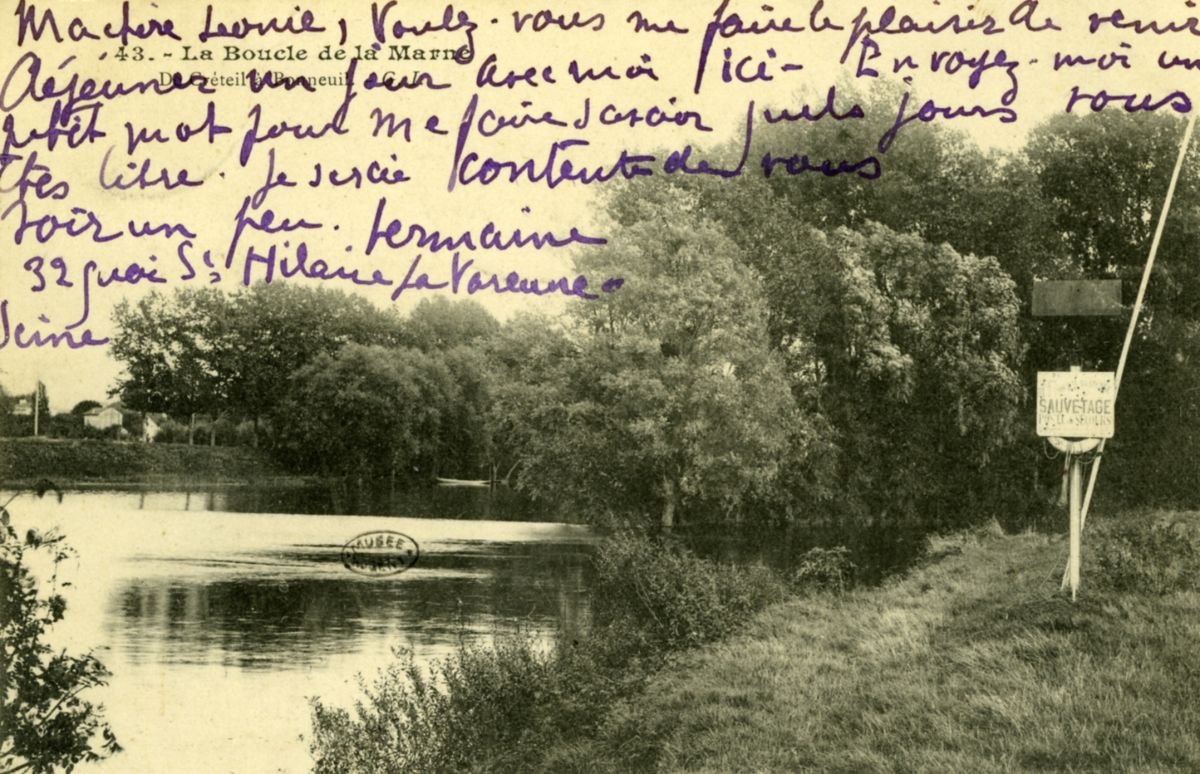 Ma chère Leonie, Voulez-vous me faire le plaisir de venir
43. - La Boucle de la Marne
De Créteil à Bonneuil. - C. J.
déjeuner un jour avec moi ici - Envoyez-moi un
petit mot pour me faire savoir quels jours vous
êtes libre. Je serai contente de vous
voir un peu. Germaine
32 quai St Hilaire La Varenne-
Seine
SAUVETAGE
POSTE de SECOURS
MUSÉE